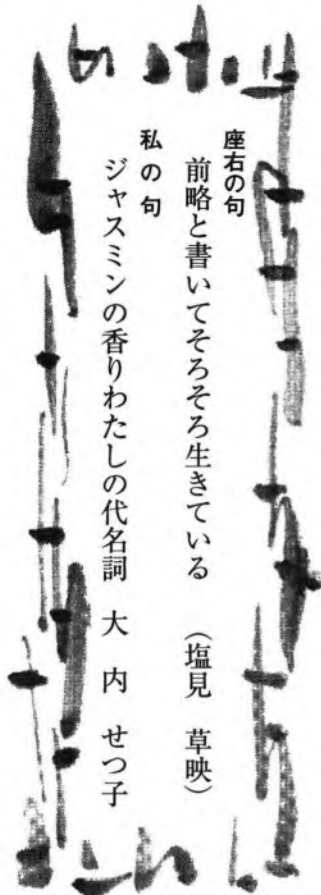 座右の句
前略と書いてそろそろ生きている　（塩見　草映）
私の句
ジャスミンの香りわたしの代名詞　大内　せつ子